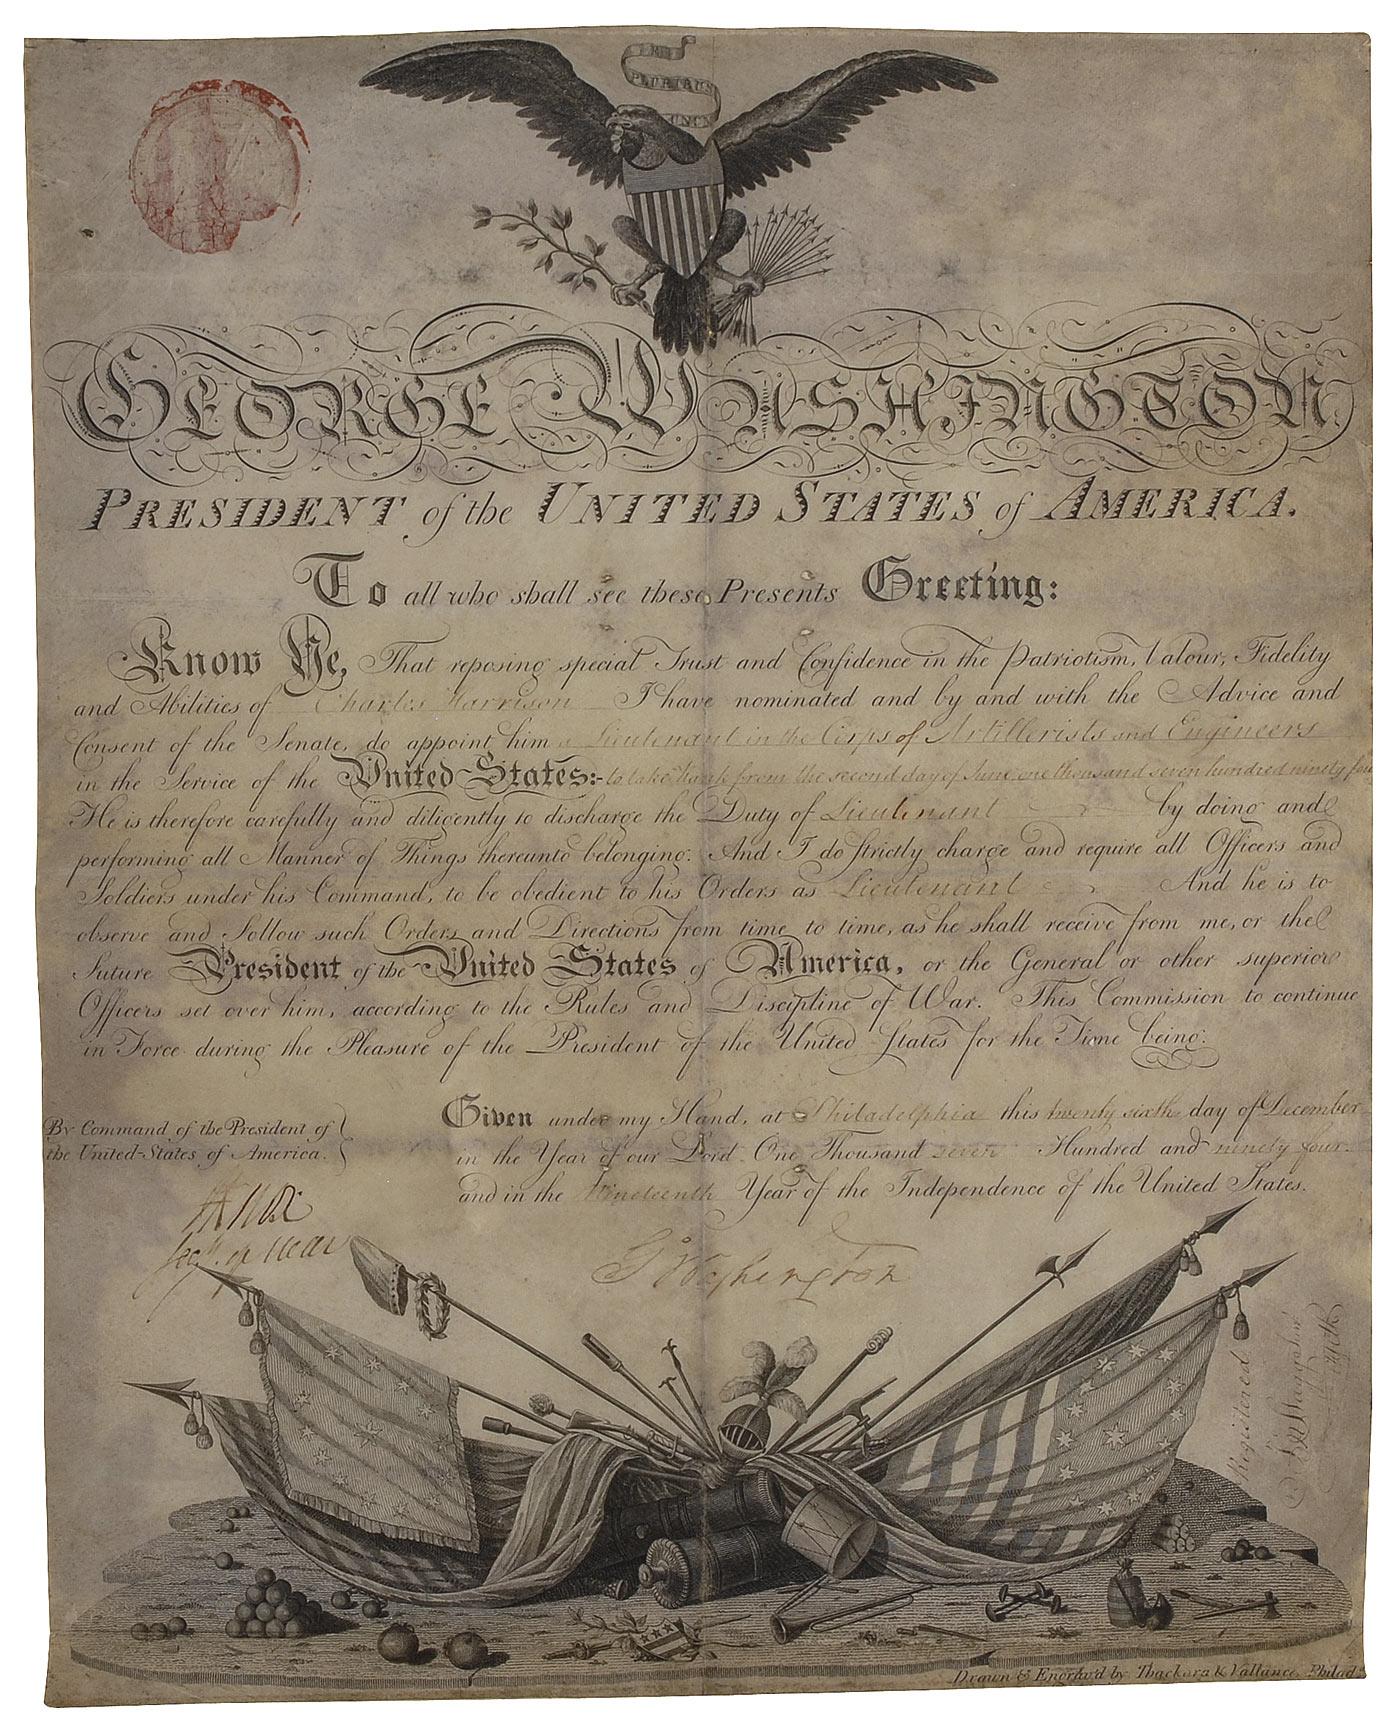 E
PLURIBUS
UNUM
GEORGE WASHINGTON,
PRESIDENT of the UNITED STATES of AMERICA.
To all who shall see these Presents Greeting:
Know Ye, That reposing special Trust and Confidence in the Patriotism, Valour, Fidelity
and Abilities of Charles Harrison I have nominated and by and with the Advice and
Consent of the Senate, do appoint him a Lieutenant in the Corps of Artillerists and Engineers
in the Service of the United States:- to take Rank from the second day of June one thousand seven hundred ninety four
He is therefore carefully and diligently to discharge the Duty of Lieutenant by doing and
performing all Manner of Things thereunto belonging. And I do strictly charge and require all Officers and
Soldiers under his Command, to be obedient to his Orders as Lieutenant And he is to
observe and follow such Orders and Directions from time to time, as he shall receive from me, or the
future President of the United States of America, or the General or other superior
Officers set over him, according to the Rules and Discipline of War. This Commission to continue
in Force during the Pleasure of the President of the United States for the Time being.
Given under my Hand, at Philadelphia this twenty sixth day of December
in the Year of our Lord One Thousand seven Hundred and ninety four
and in the Nineteenth Year of the Independence of the United States.
By Command of the President of
the United States of America.
HKnox
Secy. of War
G Washington
Registered
Drawn & Engrav'd by Thackara & Vallance Philad